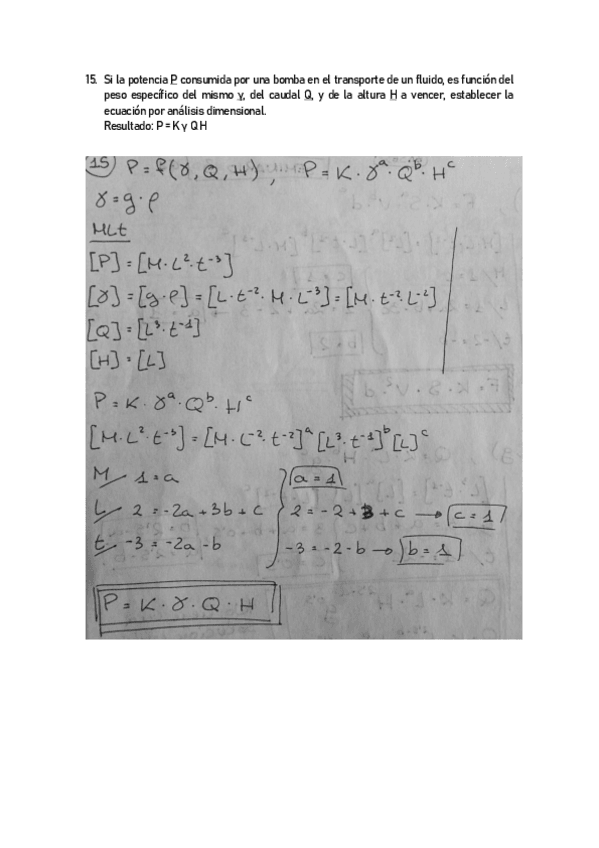 15. Si la potencia P consumida por una bomba en el transporte de un fluido, es función del
peso específico del mismo γ, del caudal Q, y de la altura H a vencer, establecer la
ecuación por análisis dimensional.
Resultado: P = K γ Q H
15) P = f(γ, Q, H) , P = K · γᵃ · Qᵇ · Hᶜ
γ = g · ρ
MLt
[P] = [M · L² · t⁻³]
[γ] = [g · ρ] = [L · t⁻² · M · L⁻³] = [M · t⁻² · L⁻²]
[Q] = [L³ · t⁻¹]
[H] = [L]
P = K · γᵃ · Qᵇ · Hᶜ
[M · L² · t⁻³] = [M · L⁻² · t⁻²]ᵃ [L³ · t⁻¹]ᵇ [L]ᶜ
M 1 = a a = 1
L 2 = -2a + 3b + c 2 = -2 + 3 + c → c = 1
t -3 = -2a - b -3 = -2 - b → b = 1
P = K · γ · Q · H